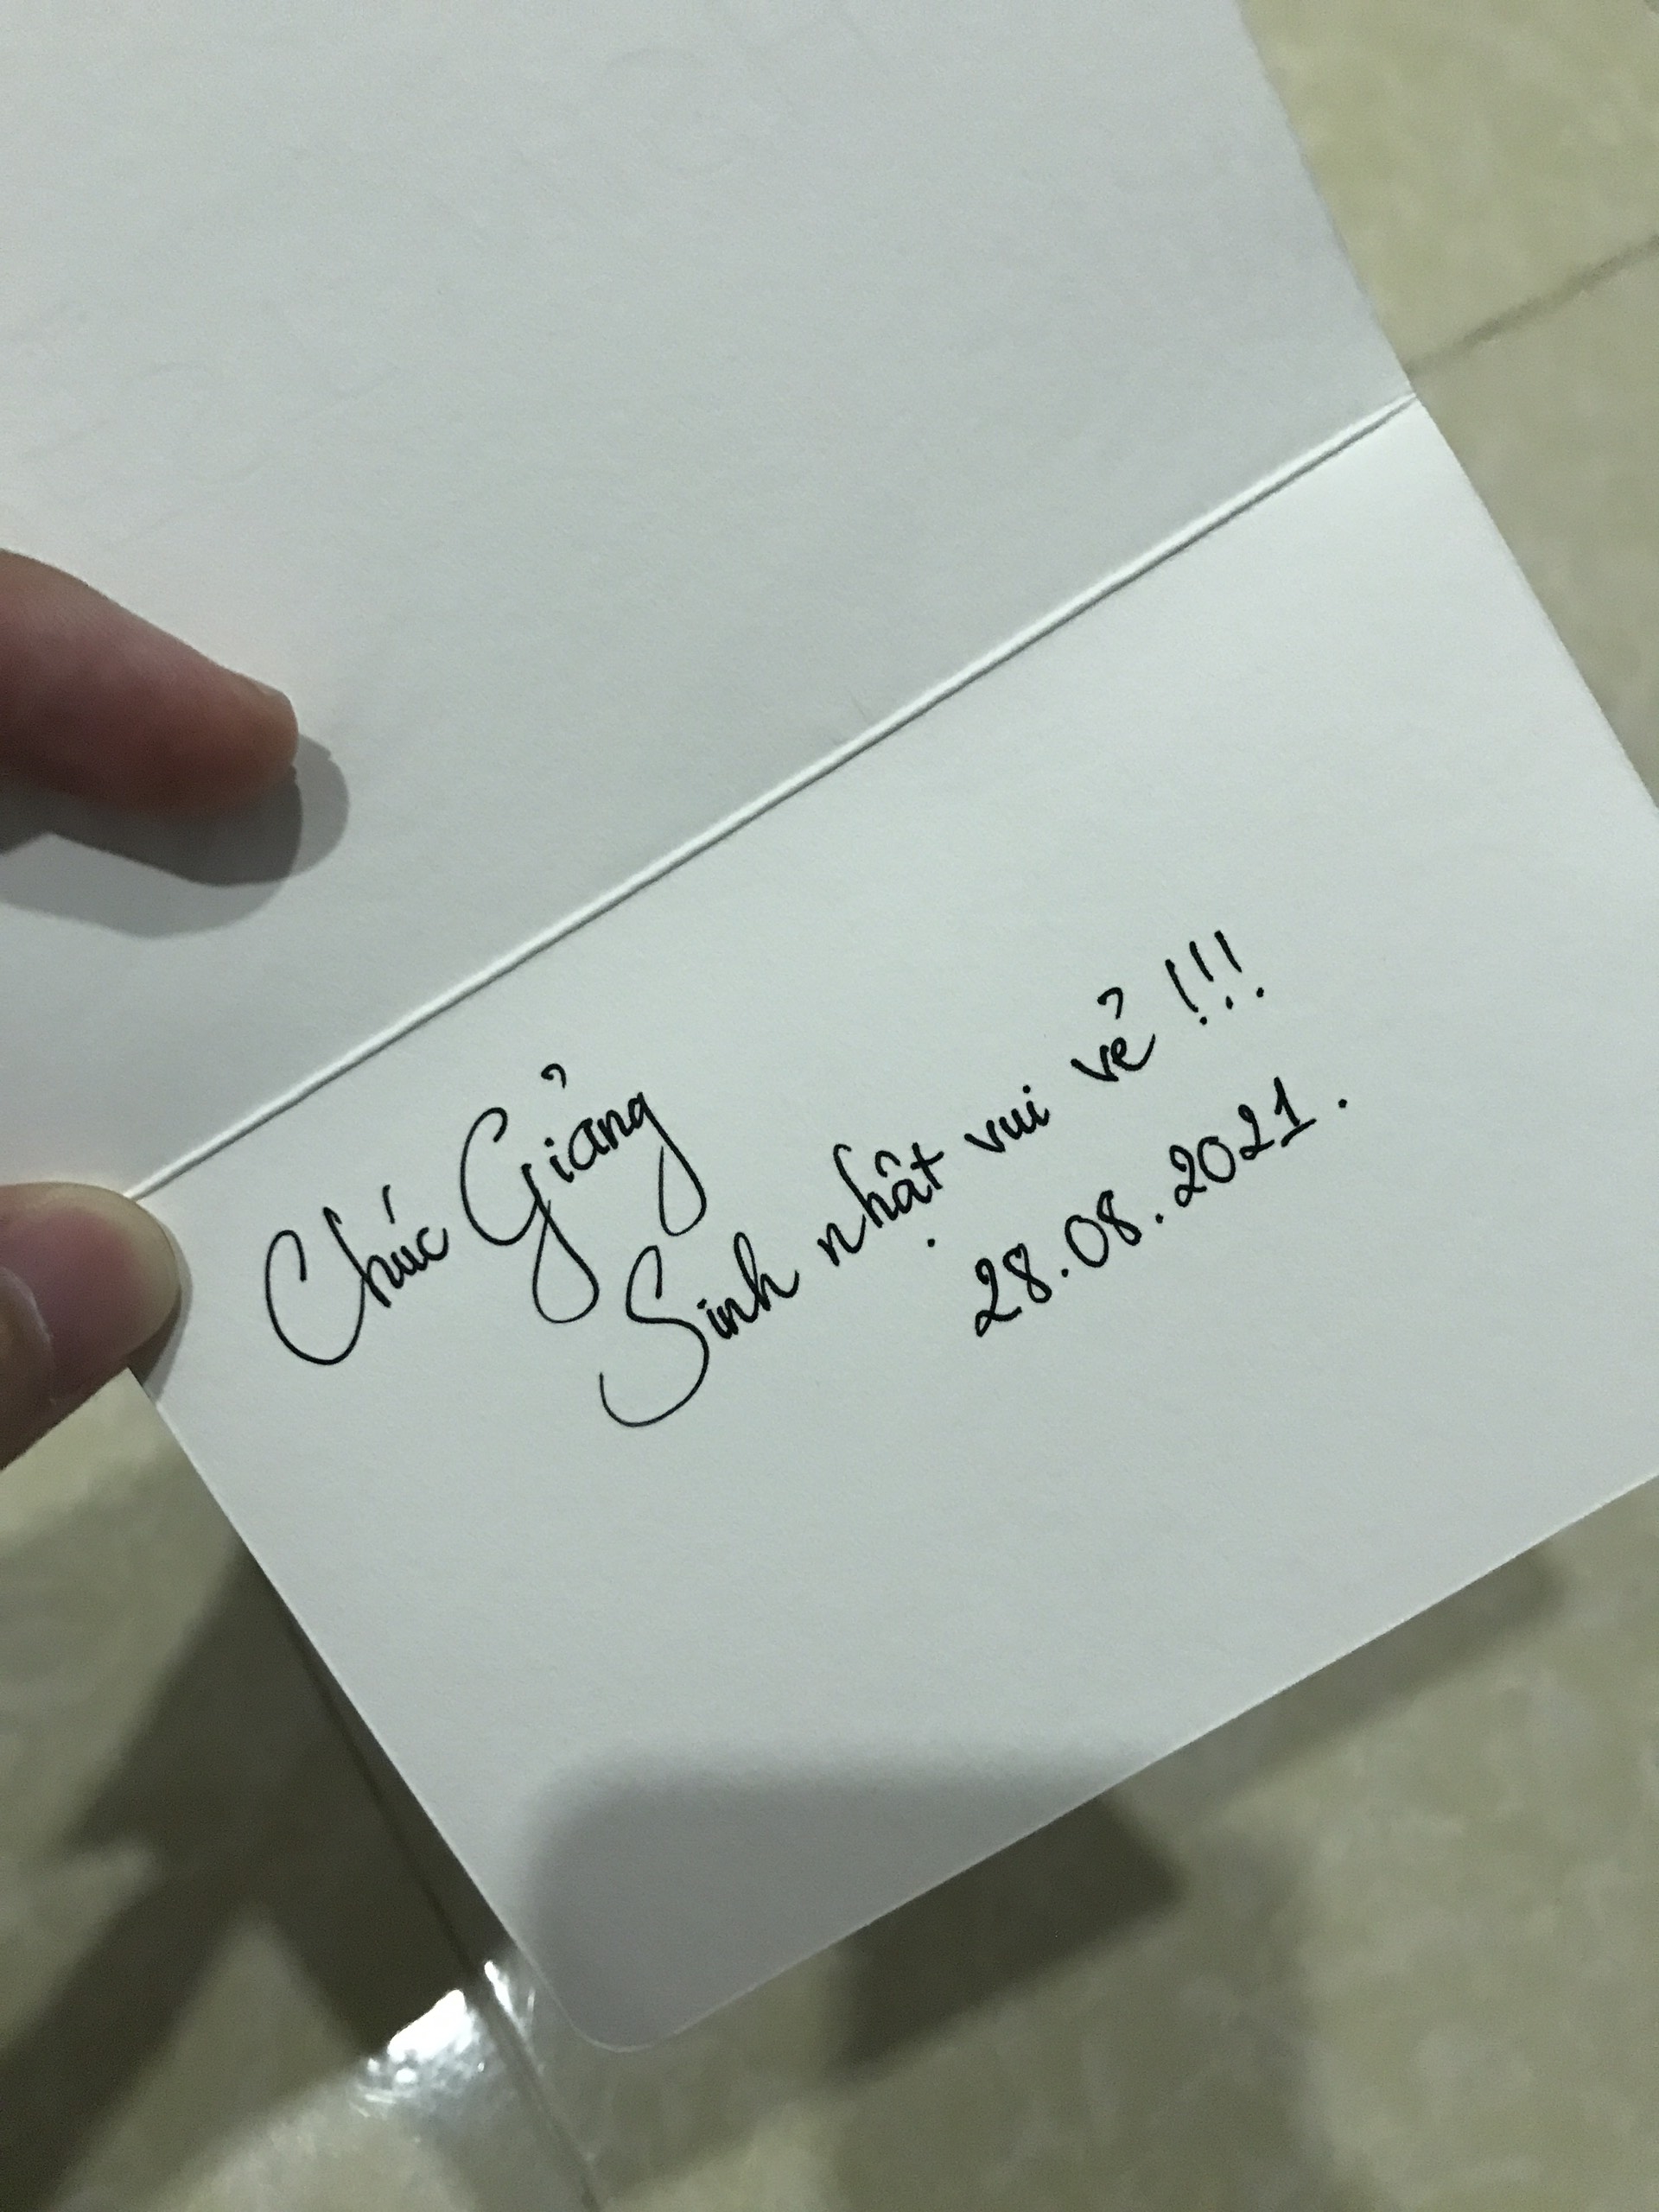 Chúc Giảng
Sinh nhật vui vẻ !!!
28.08.2021.